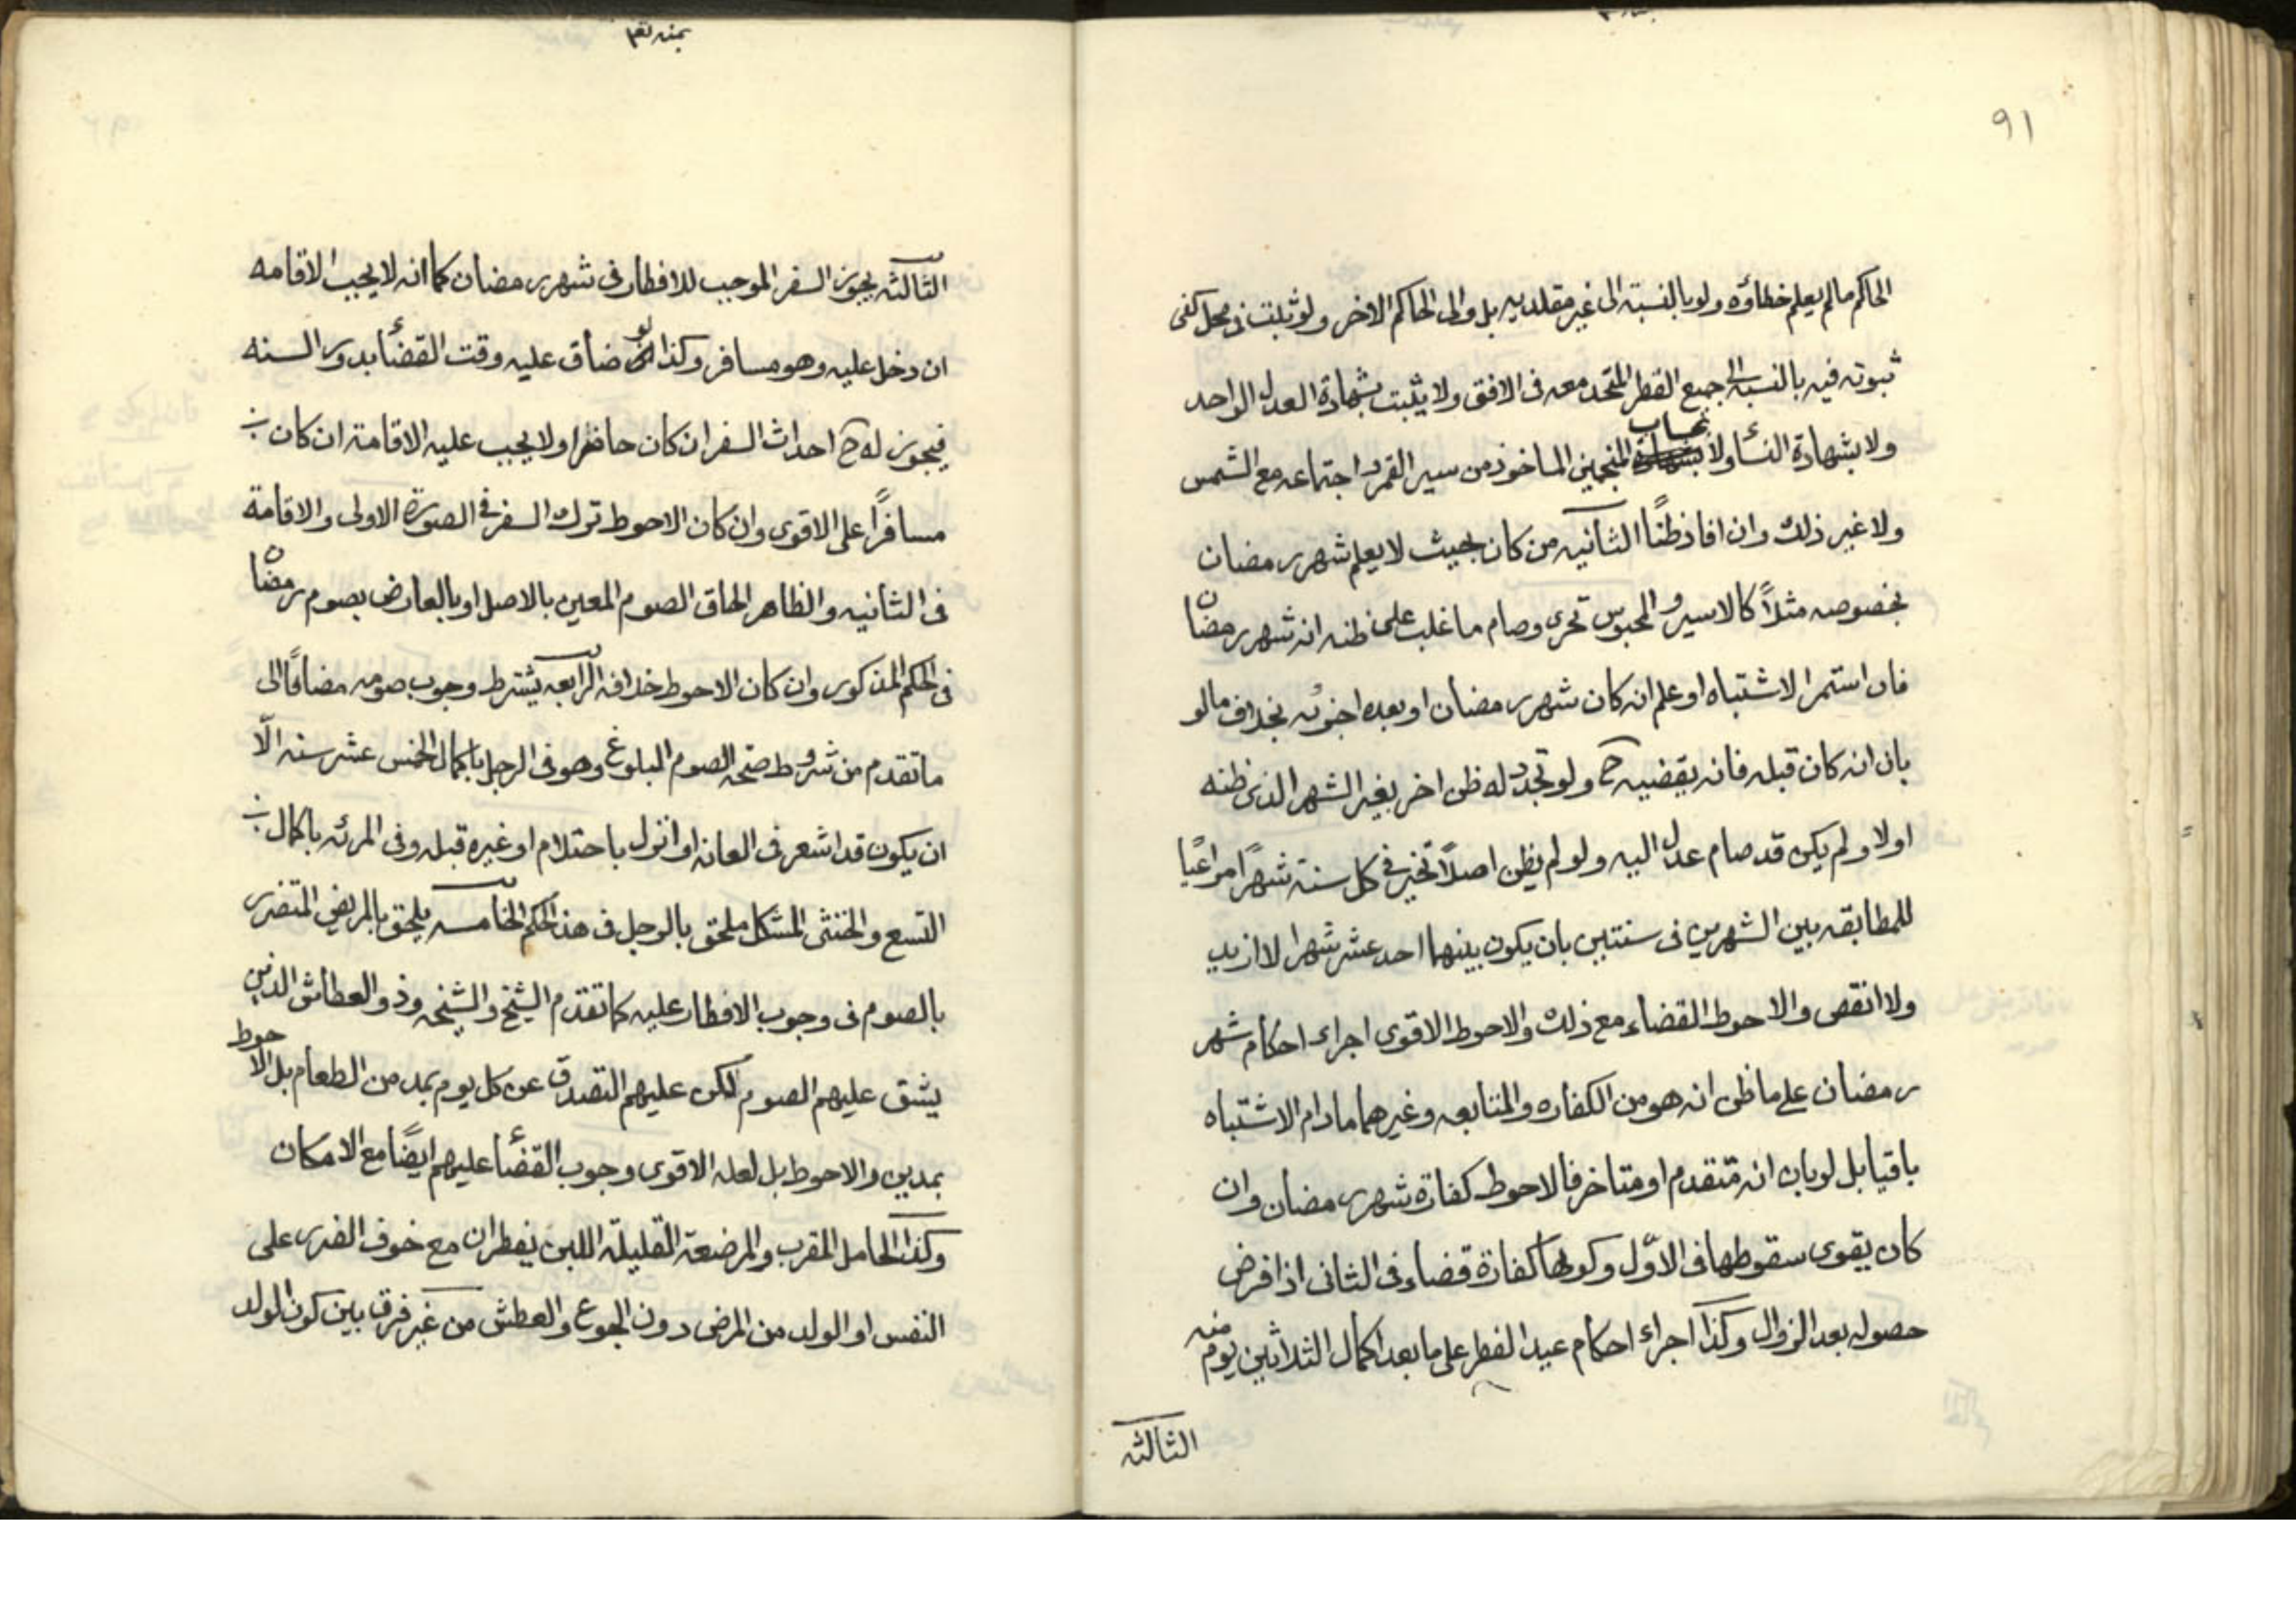 ٩١
الحاكم مالم يعلم خطاؤه ولو بالنسبة الى غير مقلديه بل والى الحاكم الاخر ولو ثبت في محل كفى
ثبوته فيه بالنسبة الى جميع القطر المتحد معه فى الافق ولا يثبت بشهادة العدل الواحد
ولا بشهادة النسأ ولا بحساب المنجمين الماخوذ من سير القمر و اجتماعه مع الشمس
ولا غير ذلك وان افاد ظنًا الثانيه من كان بحيث لا يعلم شهر رمضان
بخصوصه مثلاً كالاسير و المحبوس تحرى وصام ما غلب على ظنه انه شهر رمضان
فان استمر الاشتباه او علم انه كان شهر رمضان او بعده اجزئه بخلاف مالو
بان انه كان قبله فانه يقضيه ح ولو تجدد له ظن اخر بغير الشهر الذى ظنه
اولا ولم يكن قد صام عدل اليه ولو لم يظن اصلاً تخير في كل سنة شهرًا مراعيًا
للمطابقه بين الشهرين فى سنتين بان يكون بينهما احد عشر شهرا لا ازيد
ولا انقص والاحوط القضاء مع ذلك والاحوط الاقوى اجراء احكام شهر
رمضان على ما ظن انه هو من الكفاره والمتابعه وغيرهما مادام الاشتباه
باقيا بل لو بان انه متقدم او متاخر فالاحوط كفارة شهر رمضان وان
كان يقوى سقوطها فى الاوّل وكونها كفارة قضاء فى الثانى اذا فرض
حصوله بعد الزوال وكذا اجراء احكام عيد الفطر على ما بعد اكمال الثلاثين يوم منه
الثالثه
الثالثه يجوز السفر الموجب للافطار فى شهر رمضان كما انه لا يجب الاقامه
ان دخل عليه وهو مسافر وكذا لو ضاق عليه وقت القضأ بدور السنه
فيجوز له ح احداث السفر ان كان حاضرا ولا يجب عليه الاقامة ان كان
مسافرًا على الاقوى وان كان الاحوط ترك السفر فى الصورة الاولى والاقامة
فى الثانيه والظاهر الحاق الصوم المعين بالاصل او بالعارض بصوم رمضان
فى الحكم المذكور وان كان الاحوط خلافه الرابعه يشترط وجوب صومه مضافًا الى
ما تقدم من شروط صحة الصوم البلوغ وهو فى الرجل باكمال الخمس عشر سنه الّا
ان يكون قد اشعر فى العانه او انزل باحتلام او غيره قبله وفى المرئه باكمال
التسع والخنثى المشكل ملحق بالرجل فى هذا الحكم الخامسه يلحق بالمريض المتضرر
بالصوم فى وجوب الافطار عليه كما تقدم الشيخ والشيخه وذو العطاش الذين
يشق عليهم الصوم لكن عليهم التصدق عن كل يوم بمد من الطعام بل الاحوط
بمدين والاحوط بل لعله الاقوى وجوب القضأ عليهم ايضًا مع الامكان
وكذا الحامل المقرب والمرضعة القليلة اللبن يفطران مع خوف الضرر على
النفس او الولد من المرض دون الجوع والعطش من غير فرق بين كون الولد